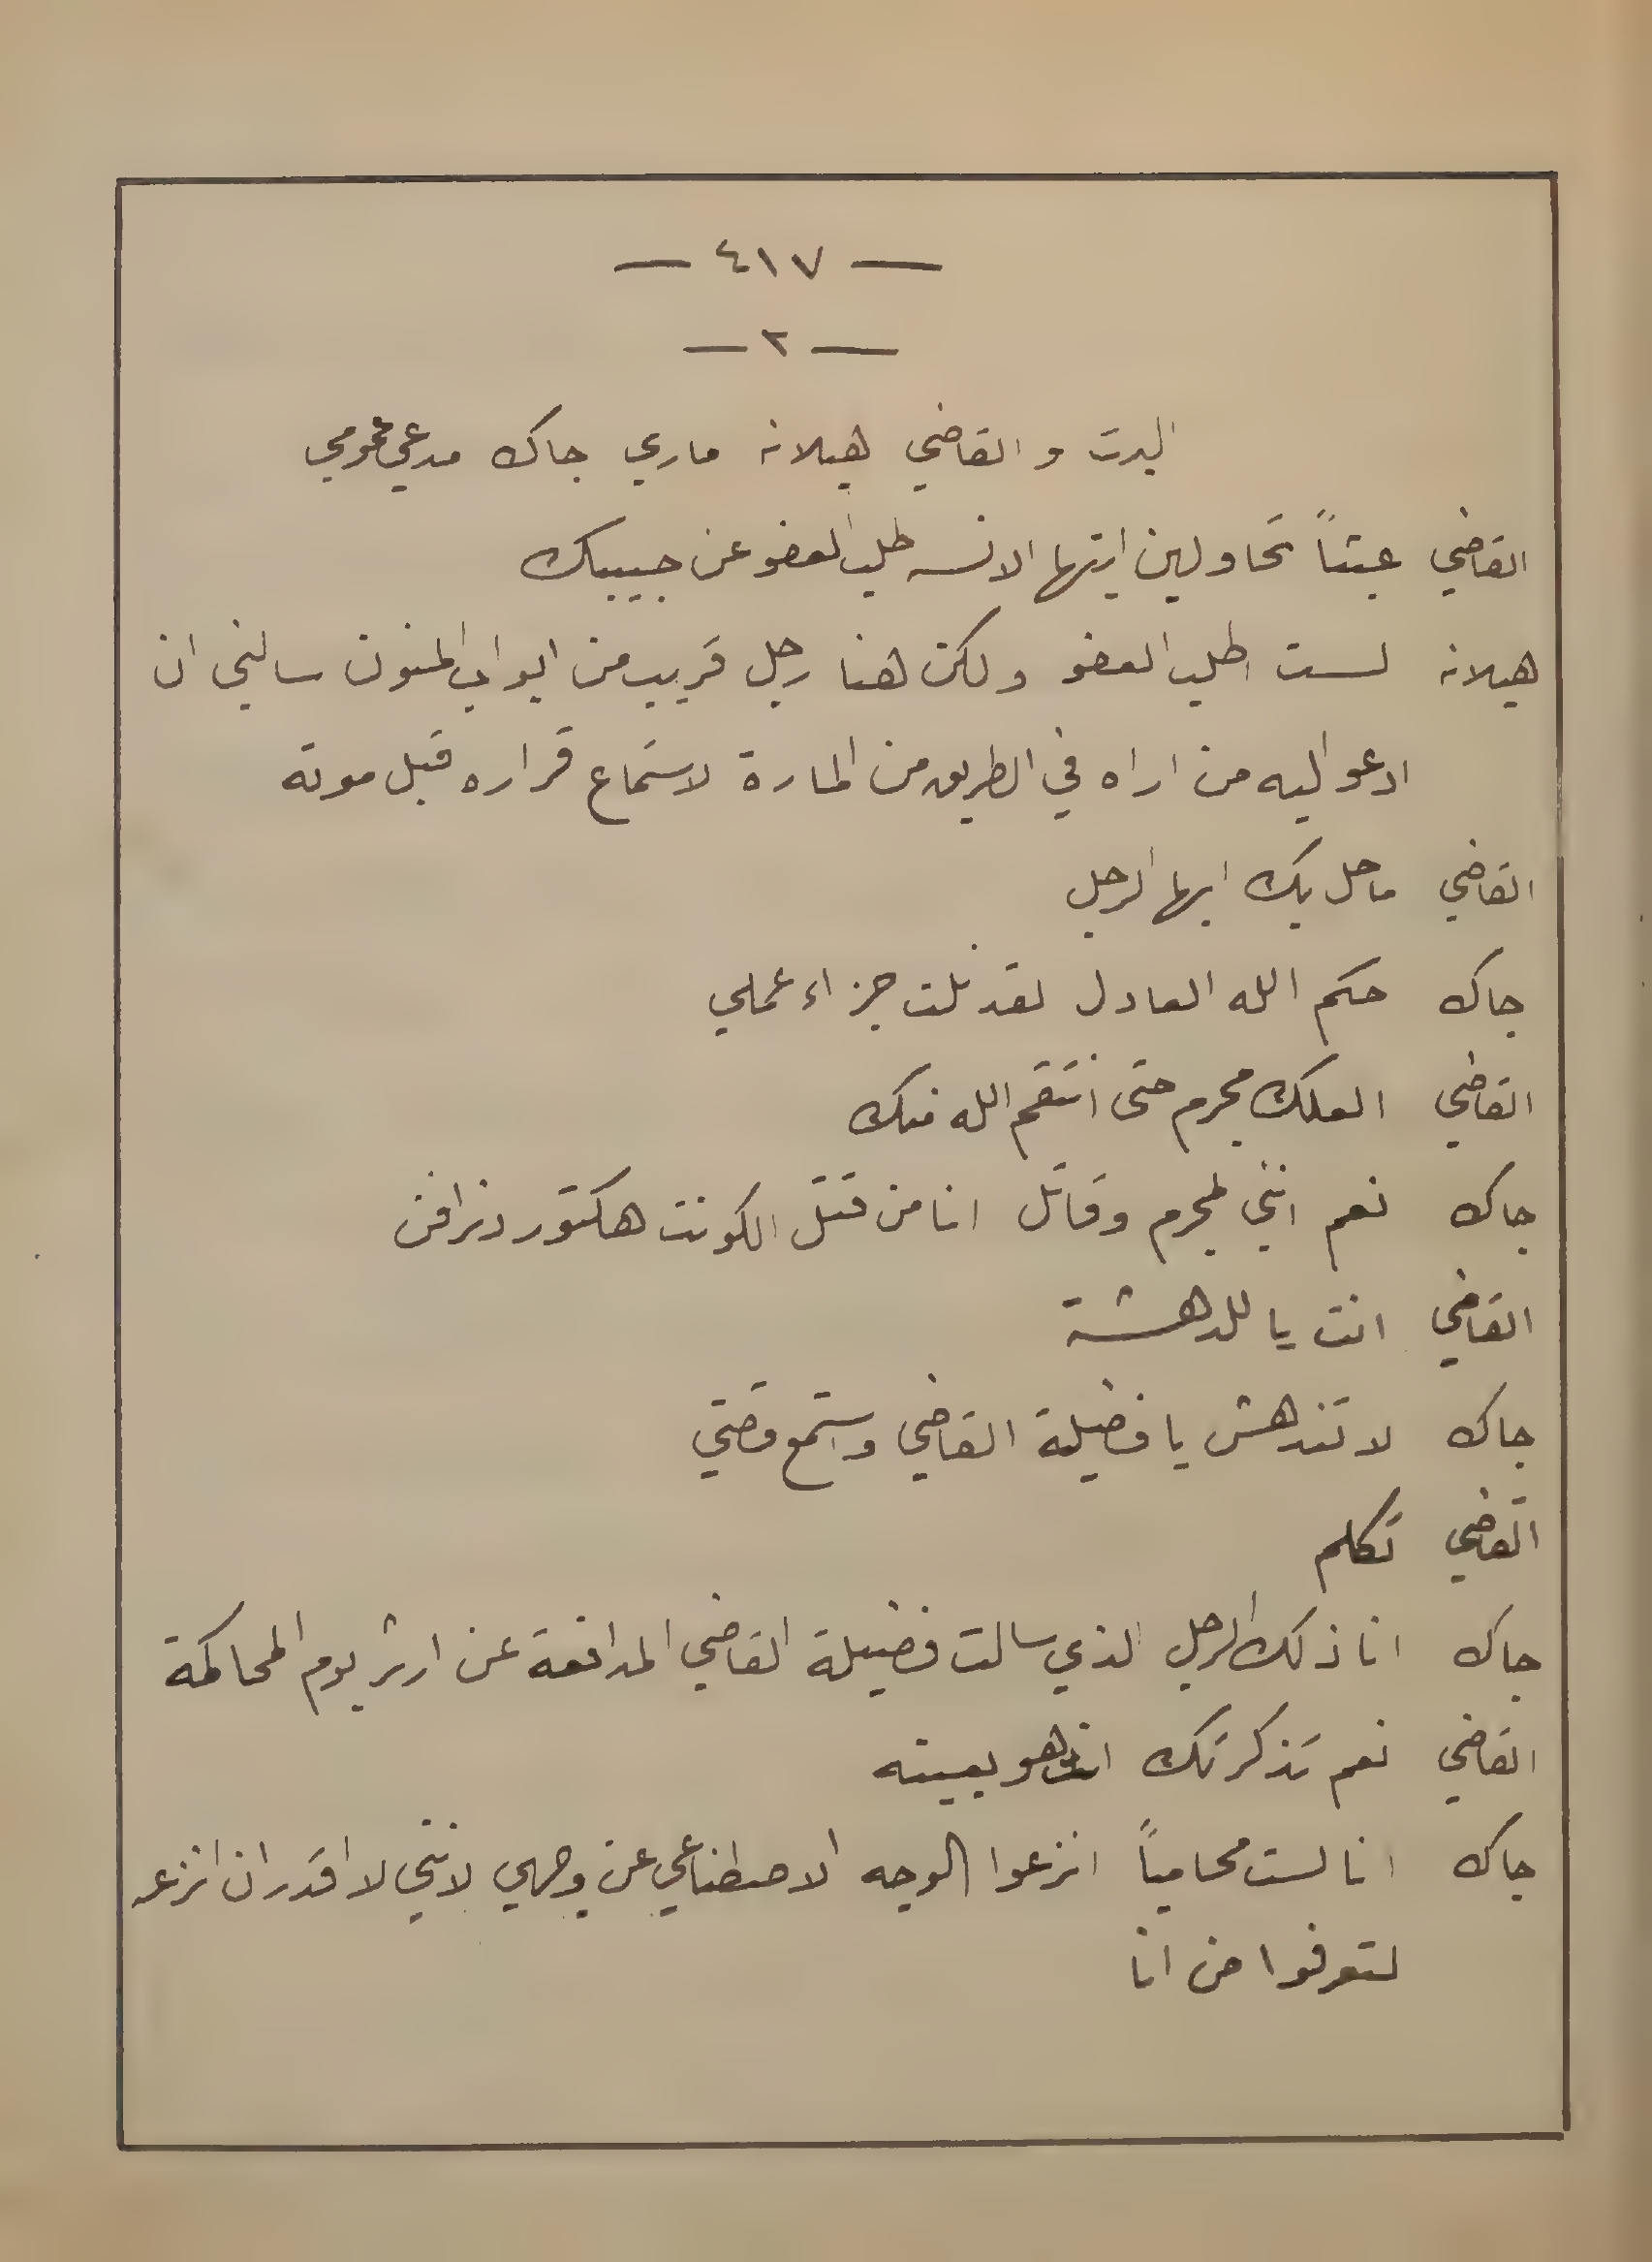 — ٤١٧ —
— ٢ —
البرت و القاضي هيلانه ماري جاك مدعي عمومي
القاضي عبثاً تحاولين ايتها الانسه طلب العفو عن حبيبك
هيلانه لست اطلب العفو ولكن هنا رجل قريب من ابواب المنون سالني ان
ادعو اليه من اراه في الطريق من المارة لاستماع قراره قبل موته
القاضي ما حل بك ايها الرجل
جاك حكم الله العادل لقد نلت جزاء عملي
القاضي العلك مجرم حتى انتقم الله منك
جاك نعم انني لمجرم وقاتل انا من قتل الكونت هكتور دنرافن
القاضي انت يا للدهشة
جاك لا تندهش يا فضيلة القاضي واستمع قصتي
القاضي تكلم
جاك انا ذلك الرجل الذي سالت فضيلة القاضي المدافعة عن ارثر يوم المحاكمة
القاضي نعم تذكرتك هو بعينه
جاك انا لست محامياً انزعوا الوجه الاصطناعي عن وجهي لانني لا اقدر ان انزعه
لتعرفوا من انا